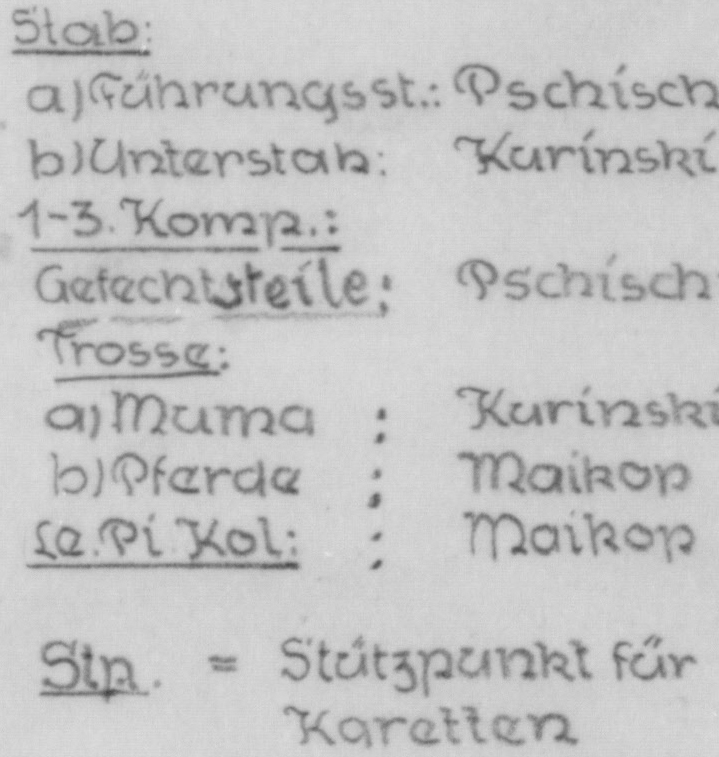 Stab:
a) Führungsst.: Pschisch
b) Unterstab: Kurinski
1-3. Komp.:
Gefechtsteile: Pschisch
Trosse:
a) Muma : Kurinski
b) Pferde : Maikop
Le. Pi Kol: : Maikop
Stp. = Stützpunkt für
Karetten